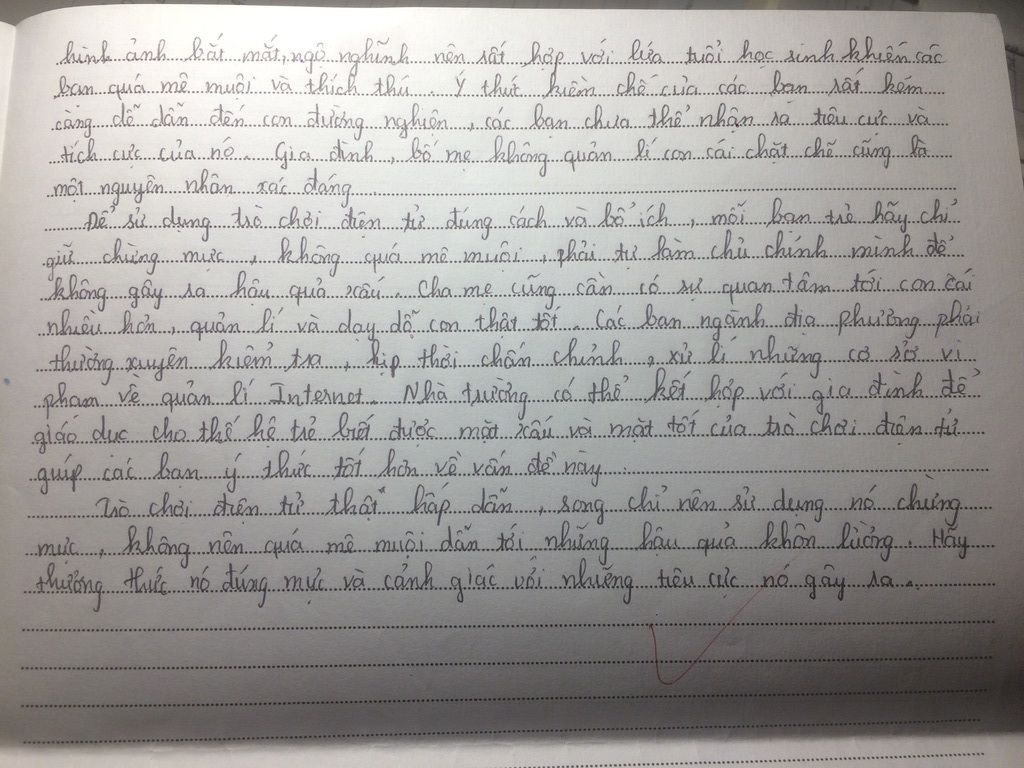 hình ảnh bắt mắt, ngộ nghĩnh nên rất hợp với lứa tuổi học sinh khiến các
bạn quá mê muội và thích thú. Ý thức kiềm chế của các bạn rất kém
càng dễ dẫn đến con đường nghiện, các bạn chưa thể nhận ra tiêu cực và
tích cực của nó. Gia đình, bố mẹ không quản lí con cái chặt chẽ cũng là
một nguyên nhân xác đáng
Để sử dụng trò chơi điện tử đúng cách và bổ ích, mỗi bạn trẻ hãy chỉ
giữ chừng mực, không quá mê muội, phải tự làm chủ chính mình để
không gây ra hậu quả xấu. Cha mẹ cũng cần có sự quan tâm tới con cái
nhiều hơn, quản lí và dạy dỗ con thật tốt. Các ban ngành địa phương phải
thường xuyên kiểm tra, kịp thời chấn chỉnh, xử lí những cơ sở vi
phạm về quản lí Internet. Nhà trường có thể kết hợp với gia đình để
giáo dục cho thế hệ trẻ biết được mặt xấu và mặt tốt của trò chơi điện tử
giúp các bạn ý thức tốt hơn về vấn đề này.
Trò chơi điện tử thật hấp dẫn, song chỉ nên sử dụng nó chừng
mực, không nên quá mê muội dẫn tới những hậu quả khôn lường. Hãy
thưởng thức nó đúng mực và cảnh giác với những tiêu cực nó gây ra.